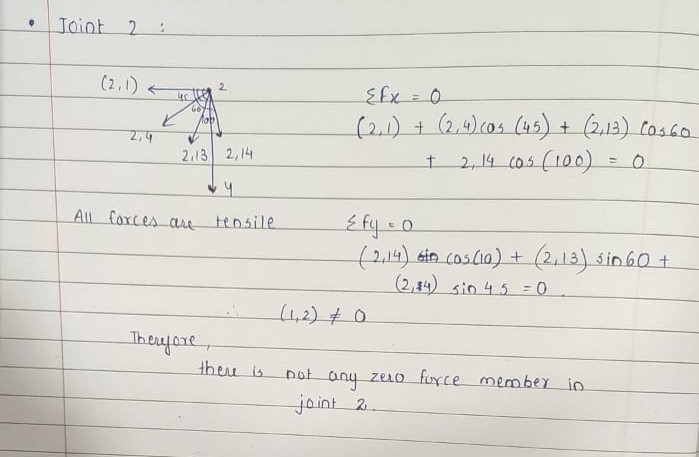 • Joint 2 :
(2,1) 2
45
60
100
2,4
2,13 2,14
y
Σfx = 0
(2,1) + (2,4) cos (45) + (2,13) Cos60
+ 2,14 cos (100) = 0
All forces are tensile
Σfy = 0
(2,14) cos(10) + (2,13) sin60 +
(2,4) sin 45 = 0.
∴ (1,2) ≠ 0
Therefore,
there is not any zero force member in
joint 2.